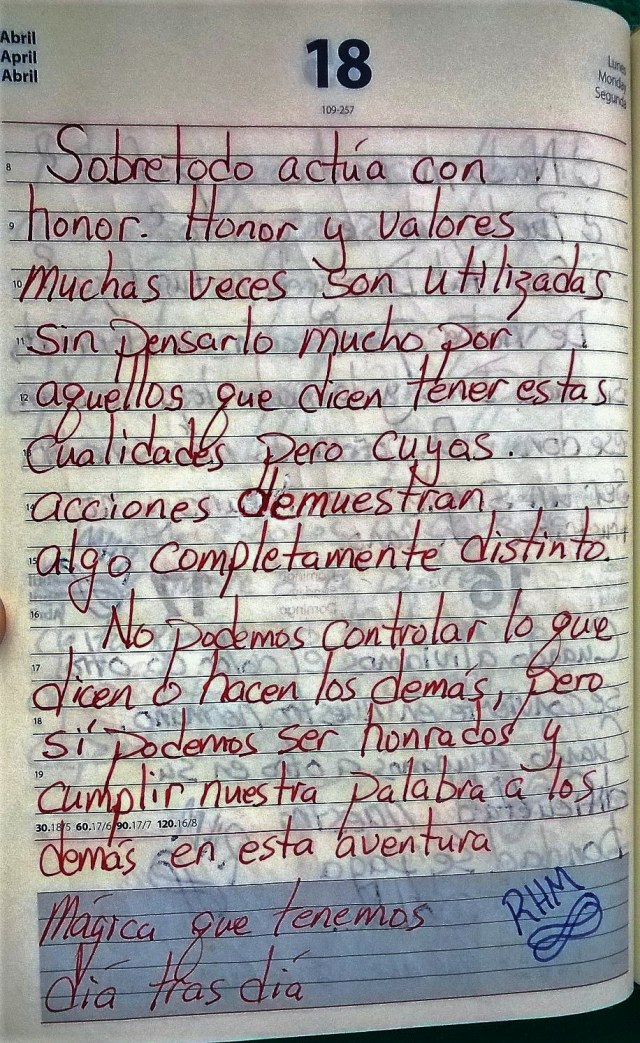 Abril
April
Abril
18
109-257
Lunes
Monday
Segunda
8 Sobretodo actúa con
9 honor. Honor y valores
10 muchas veces son utilizadas
11 sin pensarlo mucho por
12 aquellos que dicen tener estas
cualidades pero cuyas.
14 acciones demuestran
15 algo completamente distinto.
16 No podemos controlar lo que
17 dicen o hacen los demás, pero
18 sí podemos ser honrados y
19 cumplir nuestra palabra a los
30.18/5 60.17/6 90.17/7 120.16/8
demás en esta aventura
Mágica que tenemos
diá tras diá
RHM